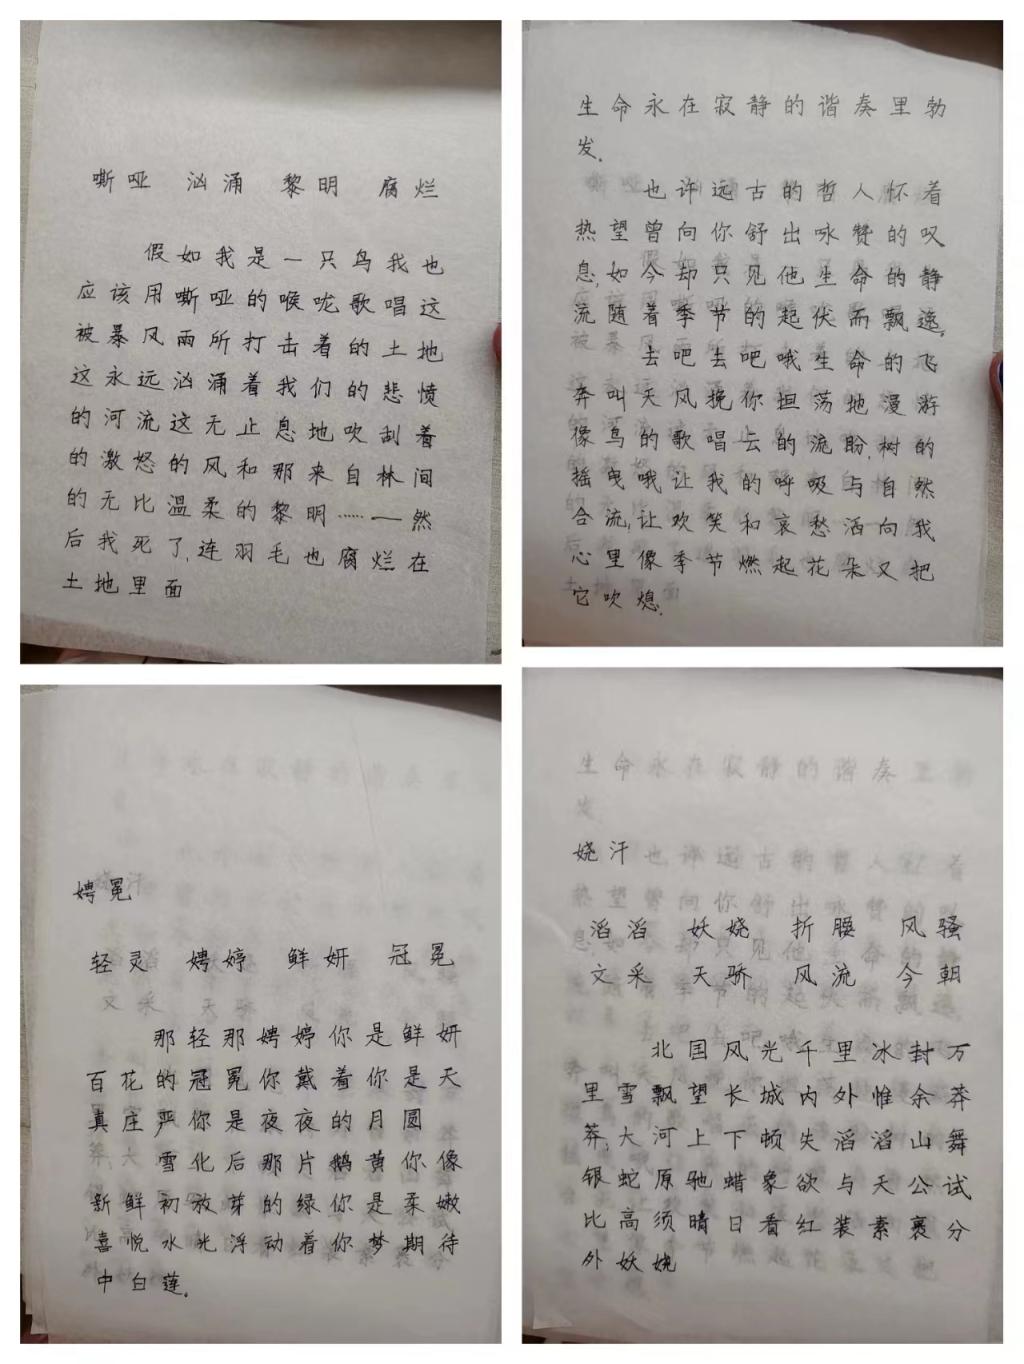 嘶哑 汹涌 黎明 腐烂
假如我是一只鸟我也
应该用嘶哑的喉咙歌唱这
被暴风雨所打击着的土地
这永远汹涌着我们的悲愤
的河流这无止息地吹刮着
的激怒的风和那来自林间
的无比温柔的黎明……——然
后我死了,连羽毛也腐烂在
土地里面
生命永在寂静的谐奏里勃
发.
也许远古的哲人怀着
热望曾向你舒出咏赞的叹
息,如今却只见他生命的静
流随着季节的起伏而飘逸.
去吧去吧哦生命的飞
奔叫天风挽你坦荡地漫游
像鸟的歌唱云的流盼.树的
摇曳哦让我的呼吸与自然
合流,让欢笑和哀愁洒向我
心里像季节燃起花朵又把
它吹熄.
娉冕
轻灵 娉婷 鲜妍 冠冕
那轻那娉婷你是鲜妍
百花的冠冕你戴着你是天
真庄严你是夜夜的月圆
雪化后那片鹅黄你像
新鲜初放芽的绿你是柔嫩
喜悦水光浮动着你梦期待
中白莲.
娆汗
滔滔 妖娆 折腰 风骚
文采 天骄 风流 今朝
北国风光千里冰封万
里雪飘望长城内外惟余莽
莽,大河上下顿失滔滔山舞
银蛇原驰蜡象欲与天公试
比高须晴日看红装素裹分
外妖娆